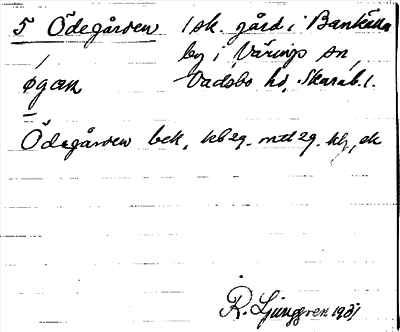 5 Ödegården 1 sk. gård i Bankälla
by i Värings sn,
øgæn Vadsbo hd, Skarab. l.
Ödegården bek, kb 29. mtl 29. kl, ek
R. Ljunggren 1931